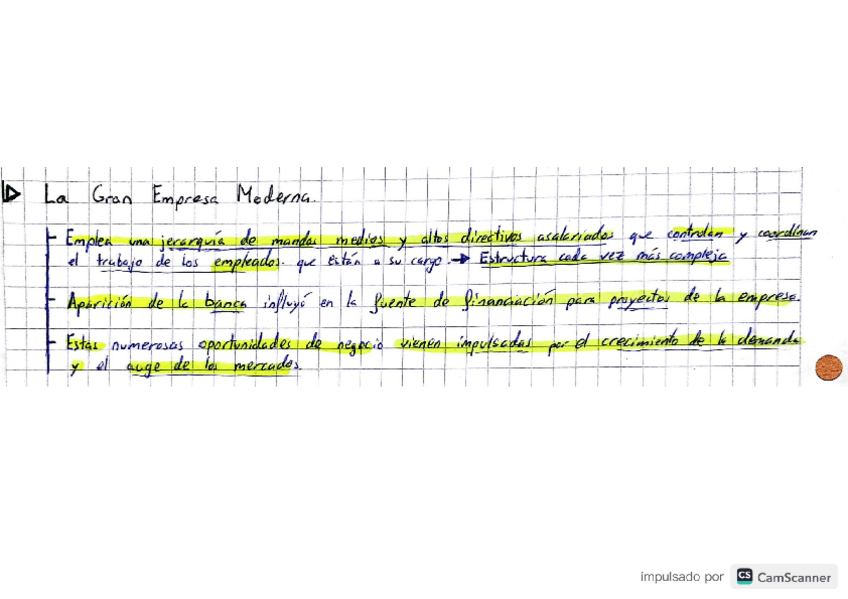 La Gran Empresa Moderna.
- Emplea una jerarquía de mandos medios y altos directivos asalariados que controlan y coordinan
el trabajo de los empleados. que están a su cargo. → Estructura cada vez más compleja
- Aparición de la banca influyó en la fuente de financiación para proyectos de la empresa.
- Estas numerosas oportunidades de negocio vienen impulsadas por el crecimiento de la demanda
y el auge de los mercados.
impulsado por CS CamScanner